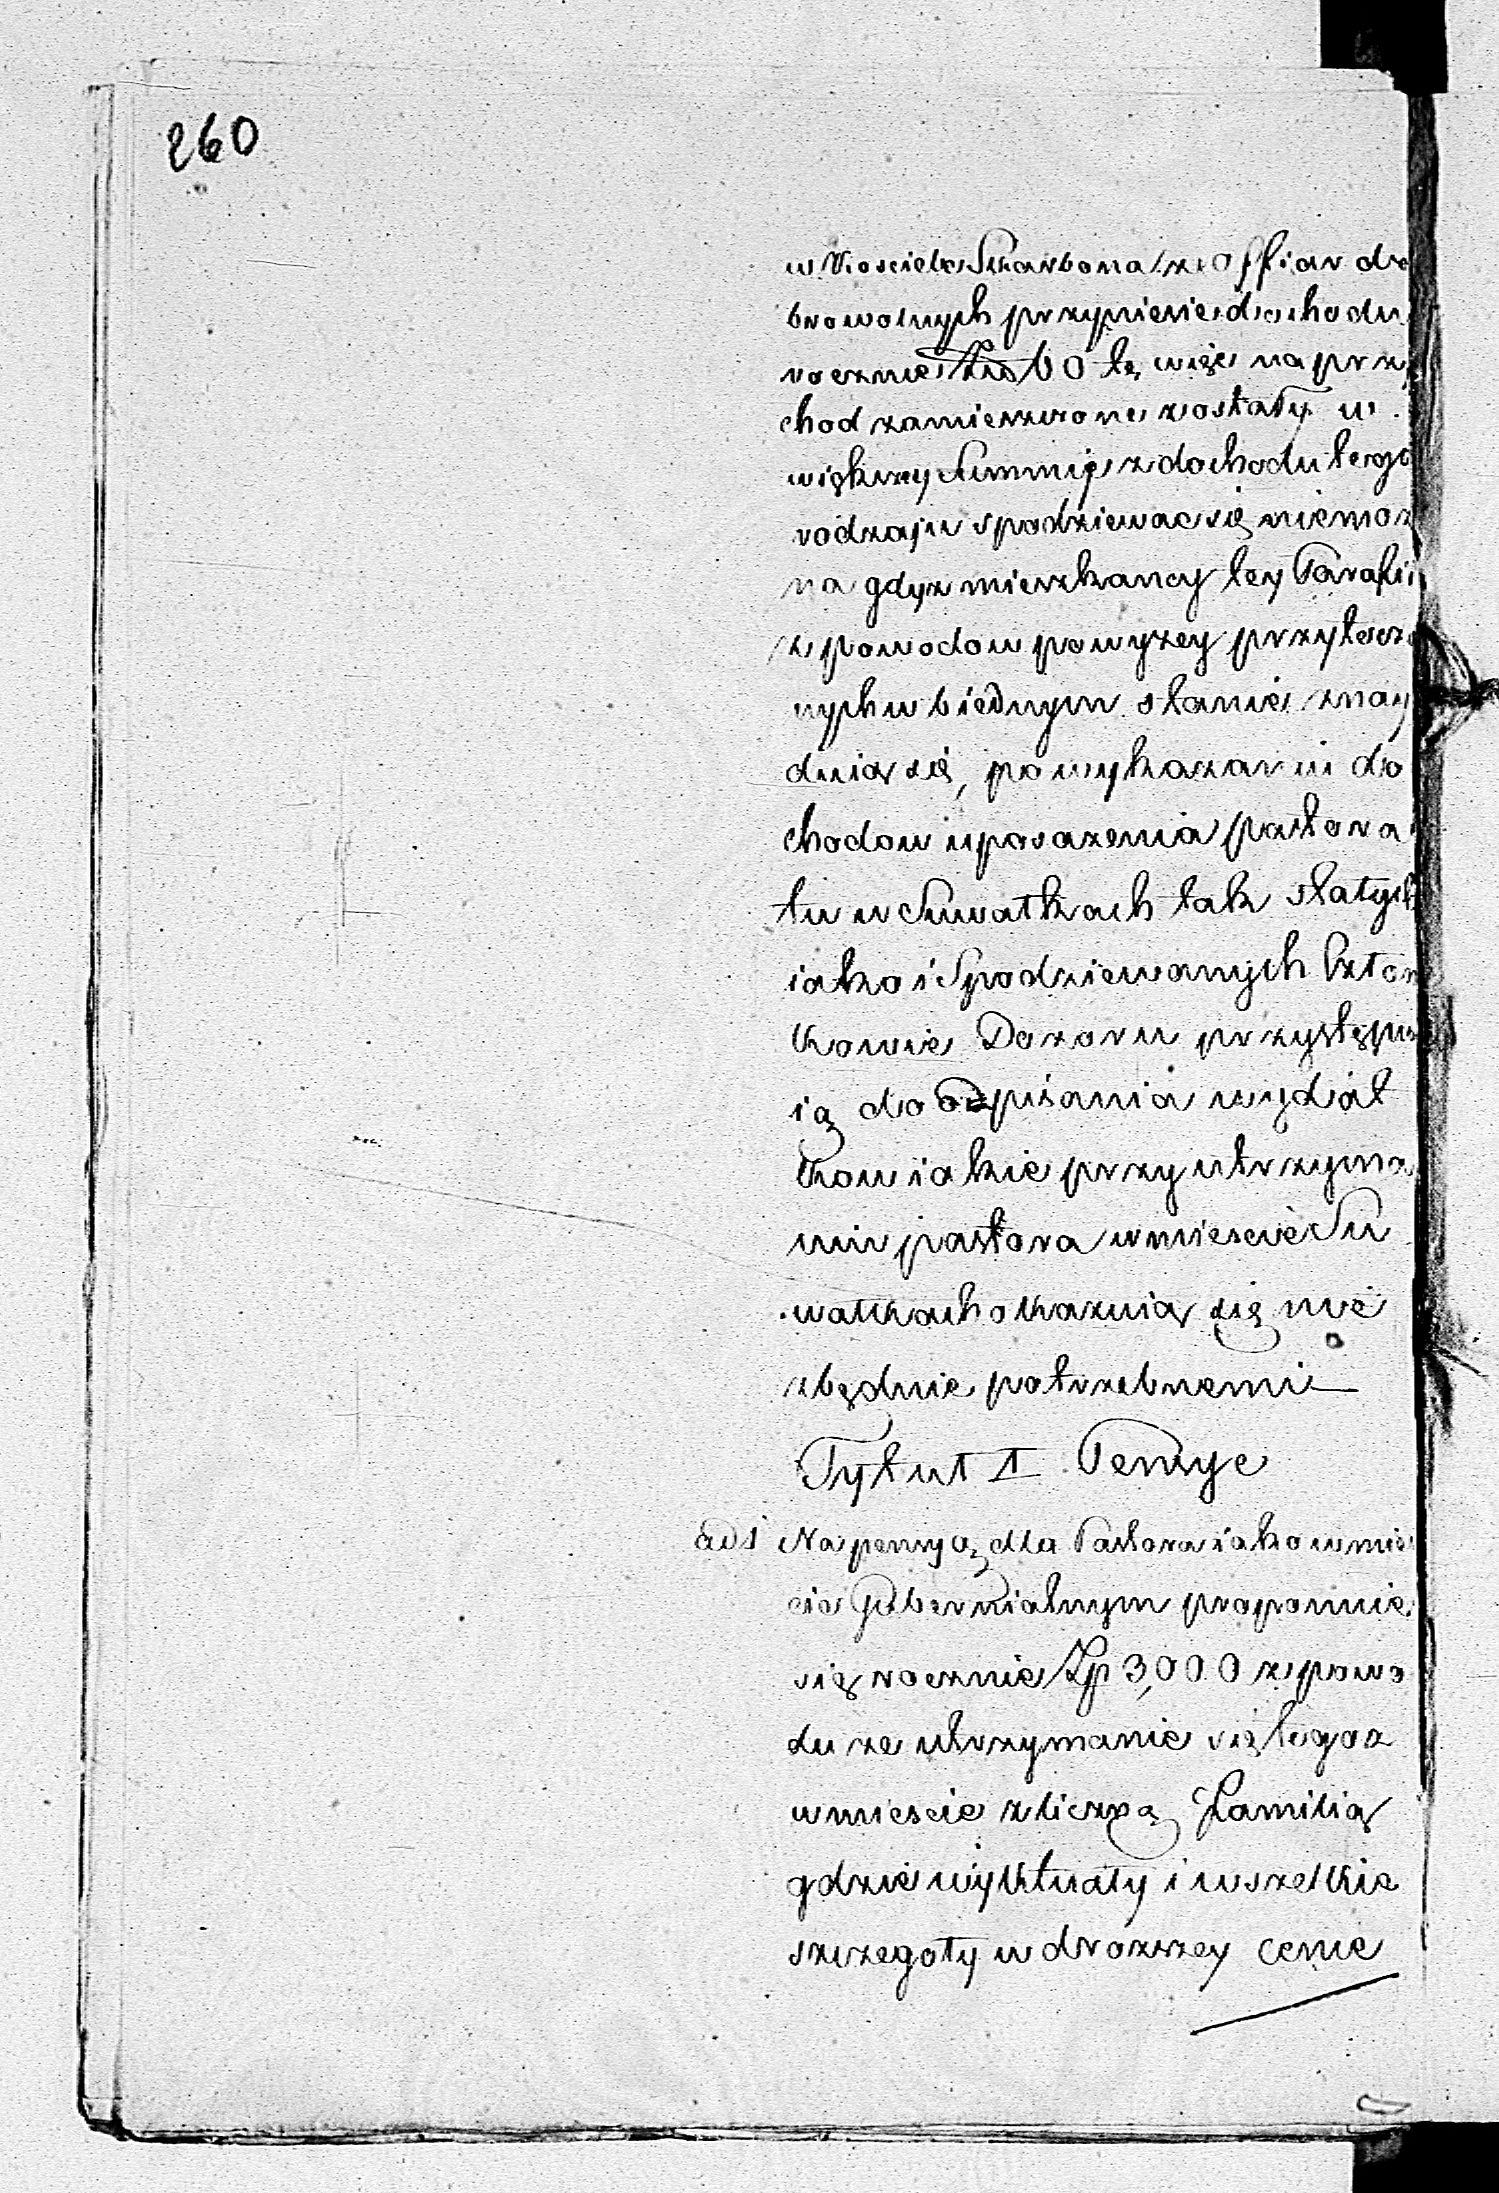 260
w Kosciele Skarbona z offiar do
browolnych przyniesie dochodu
rocznie 60 tę więc na przy
chod zamieszczone zostały w
większey Summie z dochodu tego
rodzaju spodziewac się niemoż
na gdyz mieszkancy tey Parafii
z powodow powyzey przytoczo
nych w biednym stanie znay
duią się, po wykazaniu do
chodow uposazenia pastora
tu w Suwałkach tak stałych
iako i Spodziewanych Człon
kowie Dozoru przystępu
ią do opisania wydat
kow iakie przy utrzyma
niu pastora w miescie Su
wałkach okazuią się nie
zbędnie potrzebnemi
Tytuł I Pensye
ad 1 Na pensyą dla Pastora iako w mie
cie Gubernialnym proponuie
się rocznie Zp 3,000 z powo
du ze utrzymanie się tegoz
w miescie z liczną Familią
gdzie wiktuały i wszelkie
szczegoły w drozszey cenie